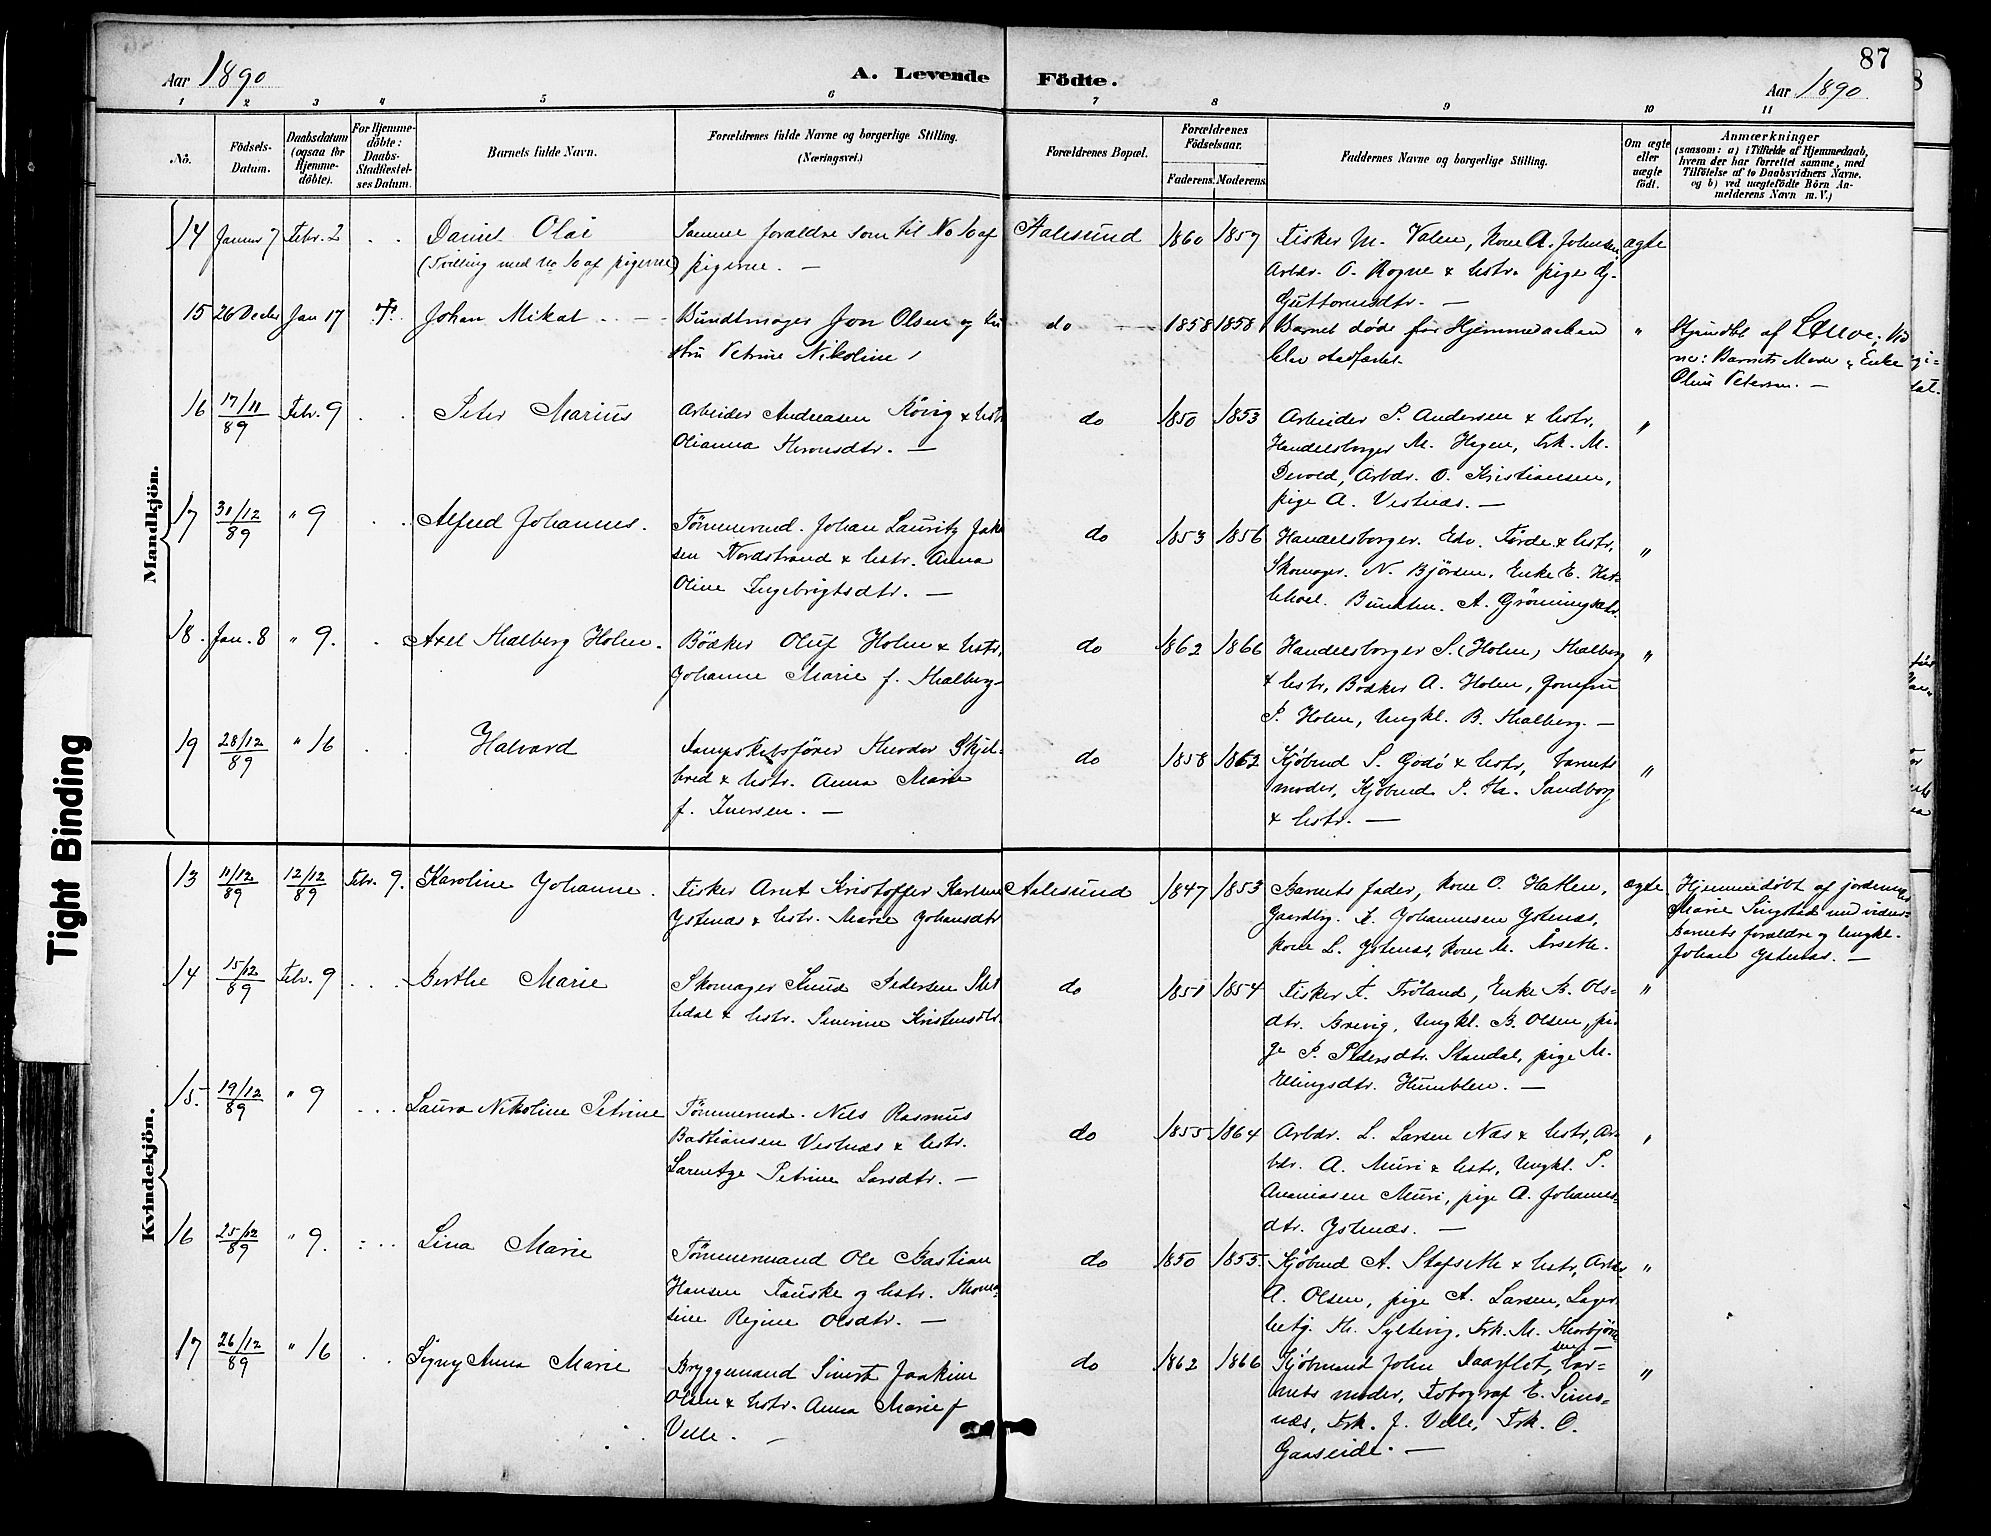 87
Aar 1890
A. Levende Födte.
Aar 1890
1 2 3 4 5 6 7 8 9 10 11
No.
Födsels-Datum.
Daabsdatum (ogsaa for Hjemme-döbte).
For Hjemme-döbte: Daabs-Stadfæstel-ses Datum.
Barnets fulde Navn.
Forældrenes fulde Navne og borgerlige Stilling.
(Næringsvei.)
Forældrenes Bopæl.
Forældrenes Födselsaar.
Faderens. Moderens.
Faddernes Navne og borgerlige Stilling.
Om ægte eller uægte födt.
Anmærkninger
(saasom: a) i Tilfælde af Hjemmedaab,
hvem der har forrettet samme, med
Tilföielse af to Daabsvidners Navne.
og b) ved uægtefödte Börn An-
melderens Navn m. V.)
Mandkjön.
14 Januar 7 Febr. 2 Daniel Olai
(Tvilling med No 10 af pigerne)
Samme forældre som til No 10 af
pigerne. —
Aalesund 1860 1857
Fisker M. Valen, kone A. Johnsen,
Arbdr. O. Rogne & hstr. pige G.
Guttormsdtr. —
ægte
15 26 Decbr Jan 17 Johan Mikal
Bundtmager Jon Olsen og hu
stru Petrine Nikoline
do 1858 1858
Barnet døde før Hjemmedaaben
blev stadfæstet.
"
Barnets Moder, Enke
Petersen. —
16 17/11 89 Febr. 9 Peter Marius
Arbeider Andreasen Kövig & hstr
Olianna Iversdtr. —
do 1850 1853
Arbeider P. Andersen & hstr,
Handelsborger M. Hagen, Frk. M.
Devold, Arbdr. O. Kristiansen,
pige A. Vestnæs. —
"
17 30/12 89 " 9 Alfred Johannes.
Tömmermd. Johan Lauritz Jak
sen Nordstrand & hstr. Anna
Oline Ingebrigtsdtr. —
do 1853 1856
Handelsborger. Edv. Förde & hstr,
Skomager. N. Björsen, Enke E. Hat-
lehoel. A. Grönningsæter
"
18. Jan. 8 " 9. Axel Thalberg Holm.
Bödker Oluf Holm & hstr.
Johanne Marie f. Thalberg
do 1862 1866
Handelsborger S. (Holm) Thalberg
& hstr, Bödker A. Holm, Jomfru
P. Holm, Ungkl. B. Thalberg. —
"
19 28/12 89 " 16 Halvard
Dampskibsförer Theodor Skjel-
bred & hstr. Anna Marie
f. Iversen. —
do 1858 1862
Kjöbmd S. Godö & hstr, barnets
moder, Kjöbmd. P. Ha. Sandborg
& hstr. —
"
Kvindekjön.
13 11/12 89 12/12 89 Febr. 9. Karoline Johanne.
Fisker Arnt Kristoffer Karlsen
Ystenæs & hstr. Marie Johansdtr
Aalesund 1847 1853
Barnets fader, kone O. Hatlen,
Gaardbr. A. Johannesen Ystenæs,
kone L. Ystenæs, kone M. Årseth.
ægte.
Hjemmedøbt af jordemor
Marie Singstad med vidner:
Barnets forældre og Ungkl.
Johan Ystenæs. —
14 15/12 89 Febr. 9 Berthe Marie
Skomager Knud Pedersen Slet
tedal & hstr. Severine Kristensdtr.
do 1851 1854
Fisker A. Tröland, Enke B. Ols-
dtr. Brevig, Ungkl. B. Olsen, pi-
ge P. Pedersdtr. Standal, pige M.
Ellingsdtr. Humblen. —
"
15. 19/12 89 " 9 Laura Nikoline Petrine
Tömmermd. Nils Rasmus
Bastiansen Vestnæs & hstr.
Larentze Petrine Larsdtr. —
do 1855 1864
Arbdr. L. Larsen Næs & hstr, Ar-
bdr. A. Muri & hstr, Ungkl. P.
Ananiasen Muri, pige A. Johannes-
dtr. Ystenæs. —
"
16 25/12 89 " 9. Lina Marie
Tömmermand Ole Bastian
Hansen Fauske og hstr. Thoma-
sine Regine Olsdtr. —
do 1850 1855.
Kjöbmd A. Stafseth & hstr, Arbdr.
A. Olsen, pige A. Larsen, Lager
betj. Th. Sylting, Frk. M. Thorbjörn
sen —
"
17 26/12 89 " 16 Signy Anna Marie
Bryggemand Sivert Joakim
Olsen & hstr. Anna Marie f
Velle. —
do 1862 1866
Kjöbmand John Daarflot, bar-
nets moder, Fotograf E. Sime-
næs, Frk. J. Velle, Frk. O.
Gaaseide. —
"
Tight Binding